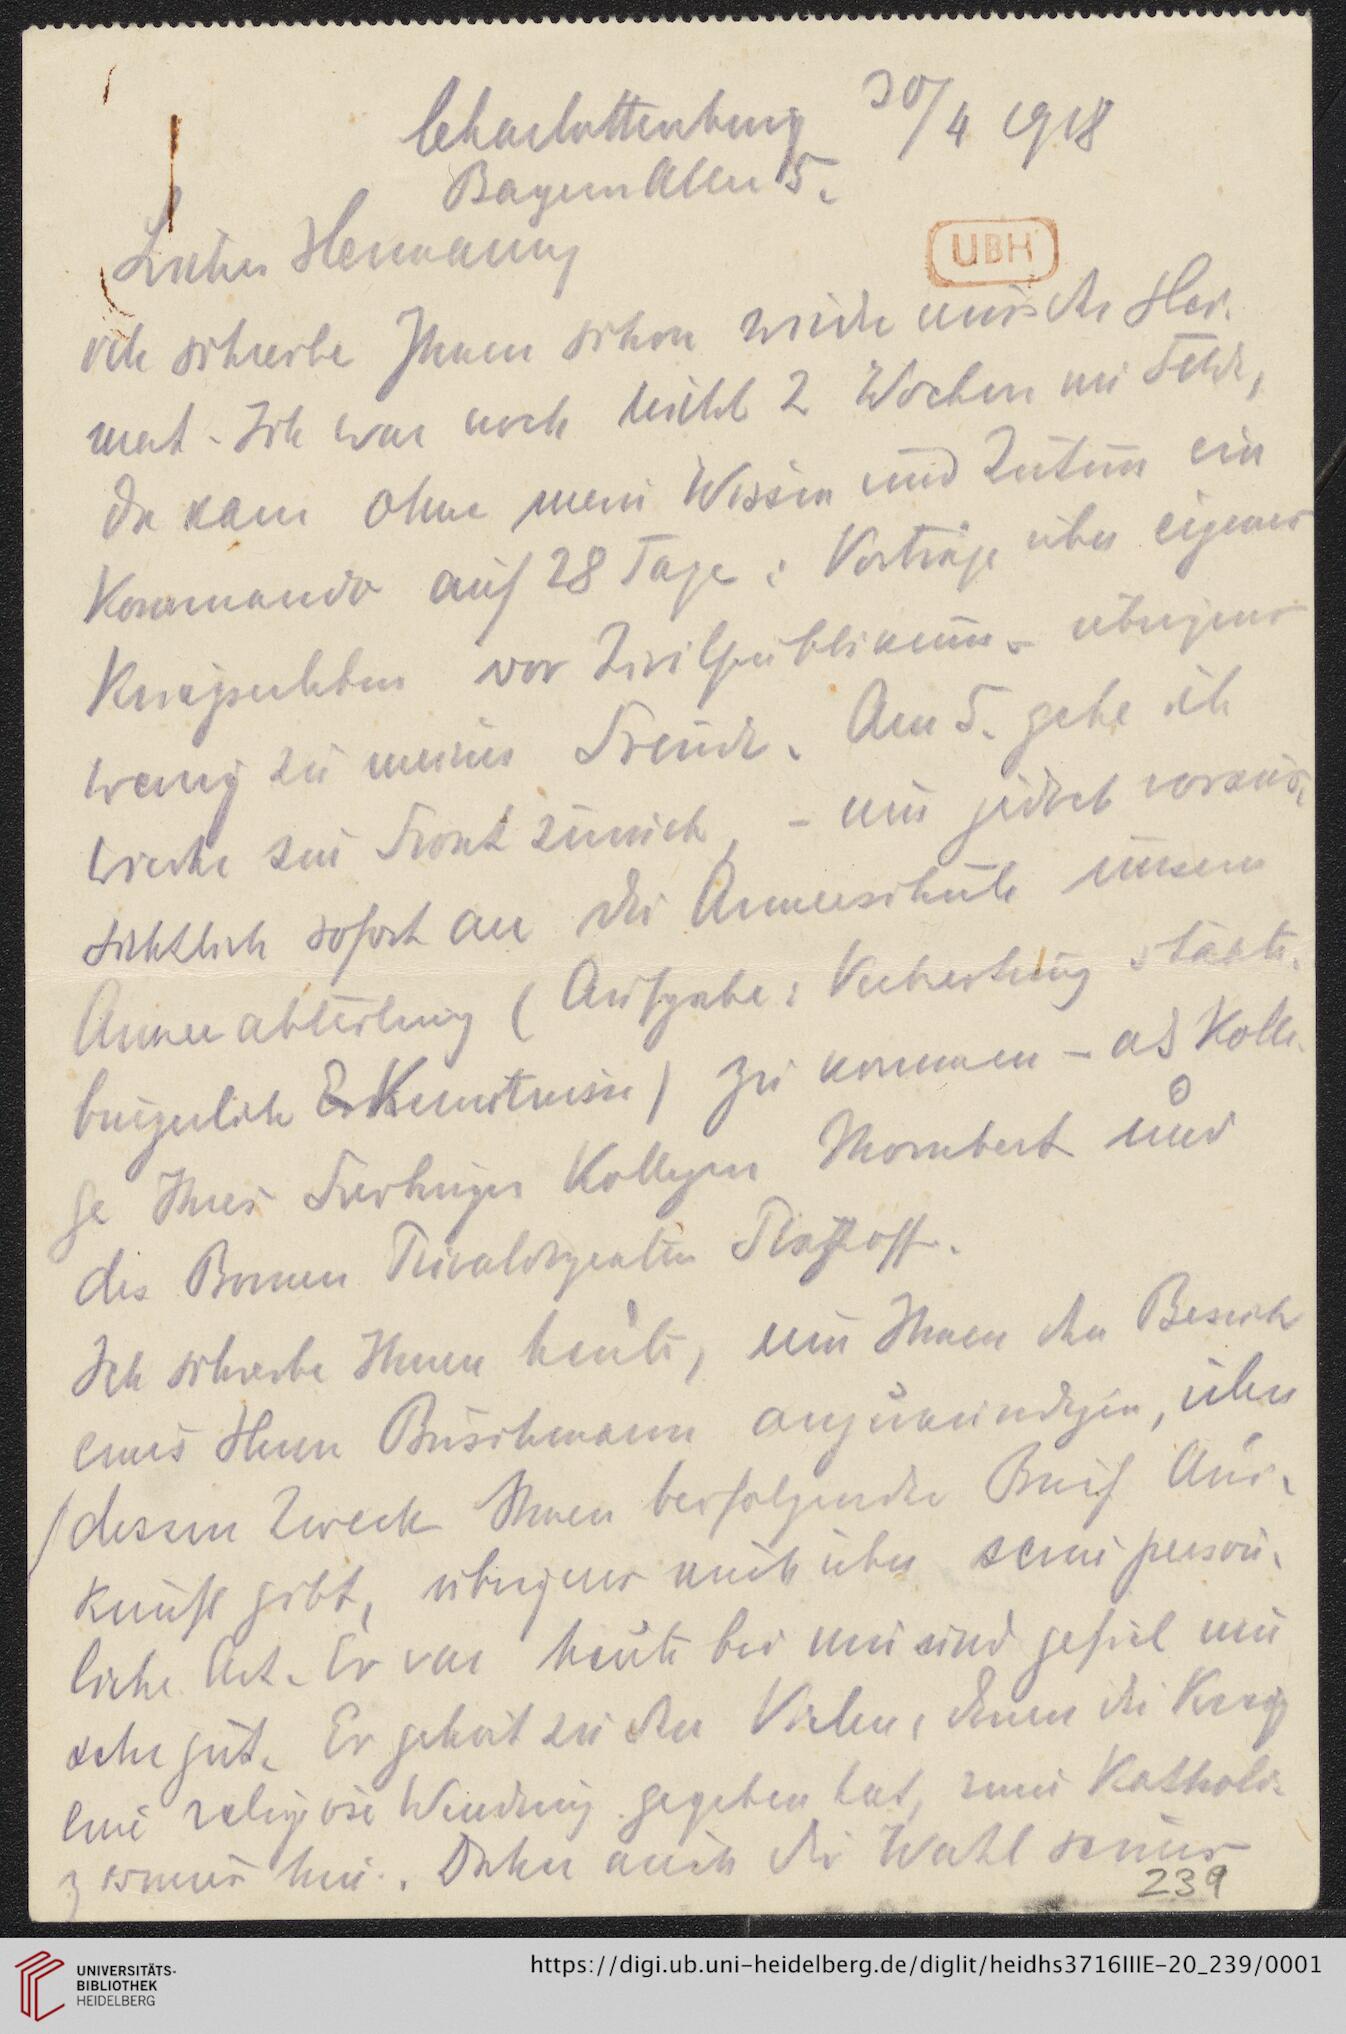 Charlottenburg 30/4 1918
Bayern Allee 5.
UBH
Lieber Hermann
ich schreibe Ihnen schon wieder aus der Hei-
mat. Ich war noch nicht 2 Wochen im Felde,
da kam ohne mein Wissen und Zutun ein
Kommando auf 28 Tage: Vorträge über eigenes
Kriegserleben vor Zivilpublikum. übrigens
wenig zu meiner Freude. Am 5. gehe ich
wieder zur Front zurück, – um jedoch voraus-
sichtlich sofort an die Armeeschule unserer
Armeeabteilung (Aufgabe: Verbreitung staats-
bürgerlicher Kenntnisse) zu kommen – als Kolle-
ge Ihres Freiburger Kollegen Mombert und
des Bonner Privatdozenten
Ich schreibe Ihnen heute, um Ihnen den Besuch
eines Herrn Buschmann anzukündigen, über
dessen Zweck Ihnen beifolgender Brief Aus-
kunft gibt, übrigens auch über seine persön-
liche Art. Er war heute bei mir und gefiel mir
sehr gut. Er gehört zu den Vielen, denen der Krieg
eine religiöse Wendung gegeben hat, zum Katholi-
zismus hin. Daher auch die Wahl seines
239
UNIVERSITÄTS-
BIBLIOTHEK
HEIDELBERG
https://digi.ub.uni-heidelberg.de/diglit/heidhs3716IIIE-20_239/0001